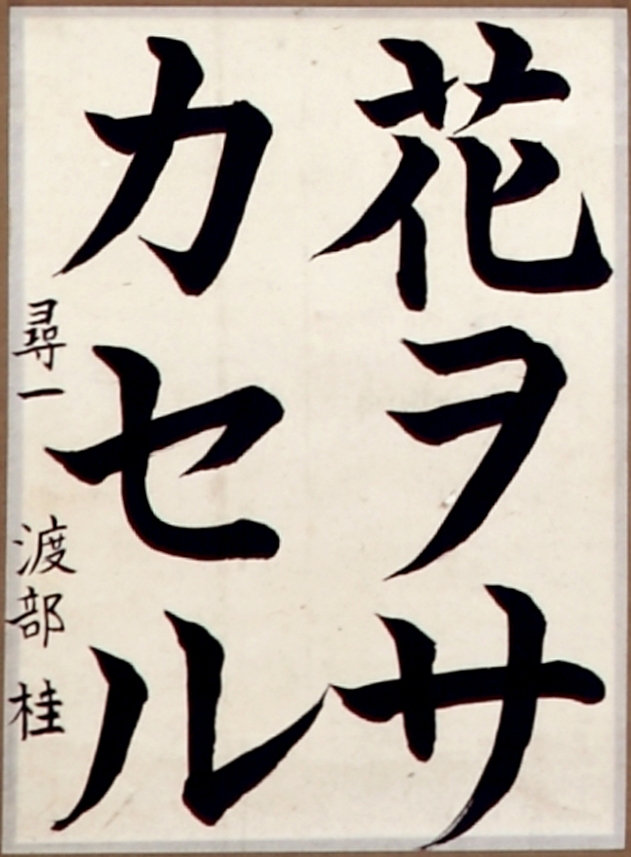 花ヲサ
カセル
尋一 渡部 桂